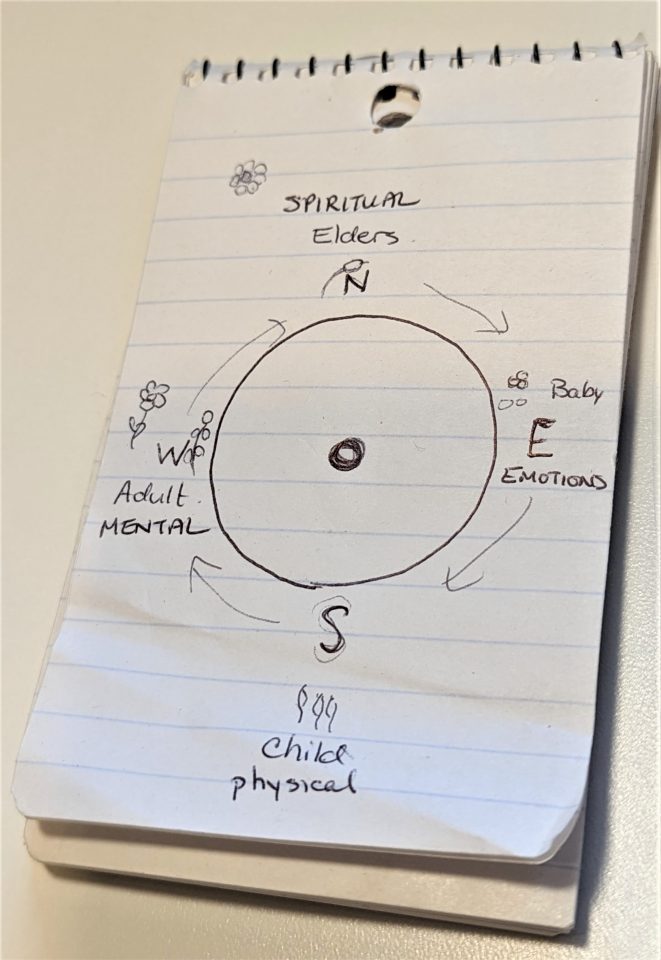 SPIRITUAL
Elders
N
Baby
E
EMOTIONS
W
Adult
MENTAL
S
Child
physical